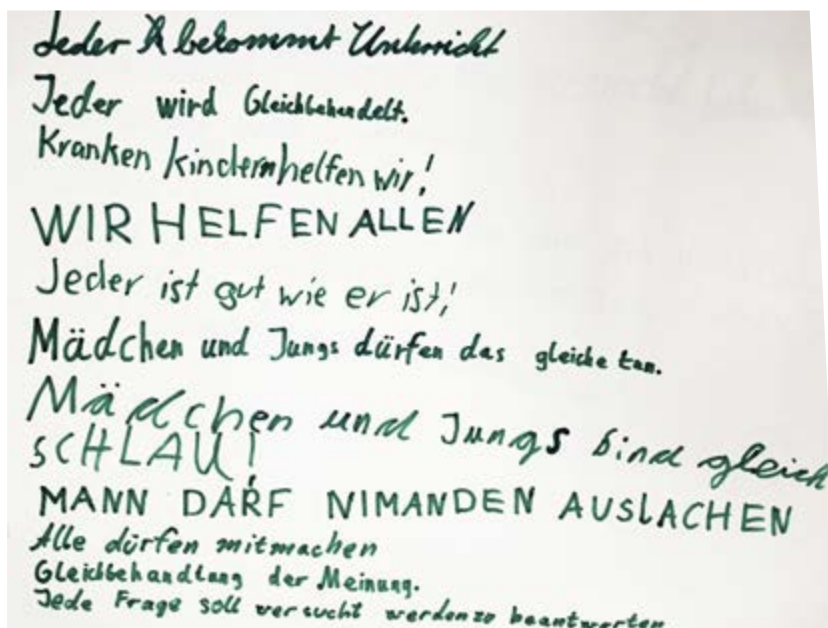 Jeder bekommt Unterricht
Jeder wird Gleichbehandelt.
Kranken kindern helfen wir!
WIR HELFEN ALLEN
Jeder ist gut wie er ist!
Mädchen und Jungs dürfen das gleiche tun.
Mädchen und Jungs sind gleich
SCHLAU!
MANN DARF NIMANDEN AUSLACHEN
Alle dürfen mitmachen
Gleichbehandlung der Meinung.
Jede Frage soll versucht werden zu beantworten